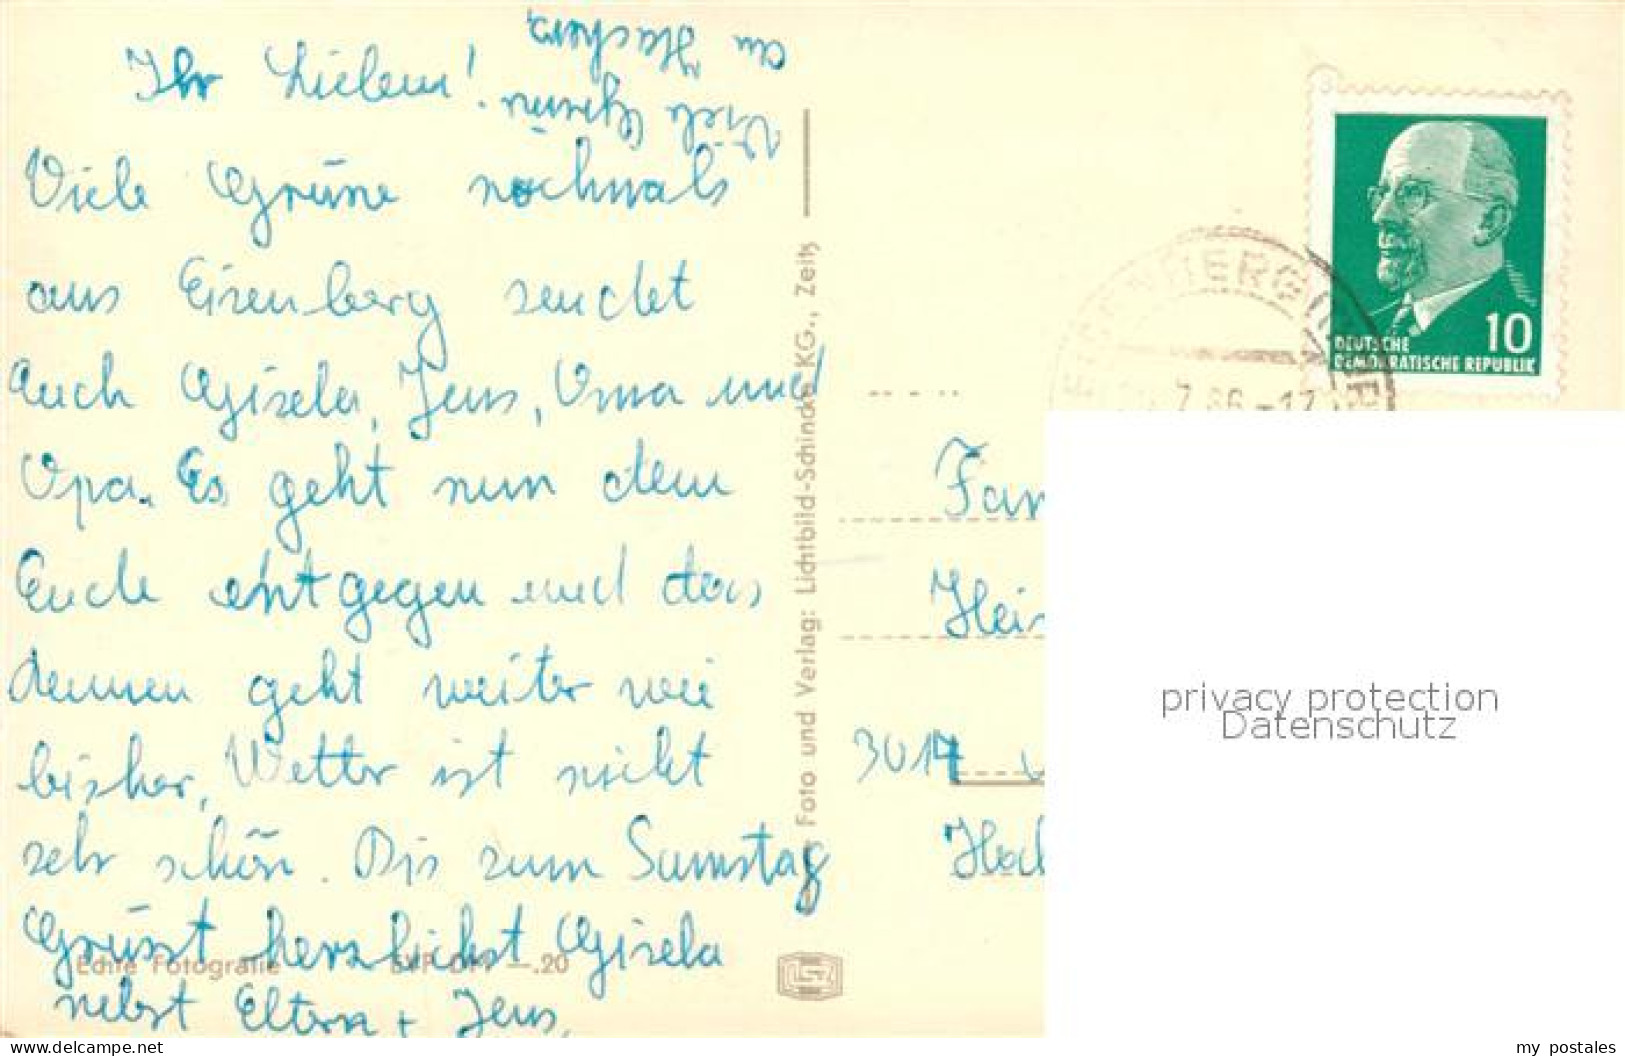 Ihr Lieben!
Viele Grüße nochmals
aus Eisenberg sendet
Euch Gisela, Jens, Oma und
Opa. Es geht nun dem
Ende entgegen und das
Rennen geht weiter wie
bisher, Wetter ist nicht
sehr schön. Bis zum Samstag
Grüsst herzlichst Gisela
nebst Eltern + Jens,
Viele Grüsse
an
Echte Fotografie EVP DM —.20
Foto und Verlag: Lichtbild-Schincke KG., Zeitz
DEUTSCHE
DEMOKRATISCHE REPUBLIK
10
7.66-17
Fam
Hei
3014
privacy protection
Datenschutz
www.delcampe.net
my_postales